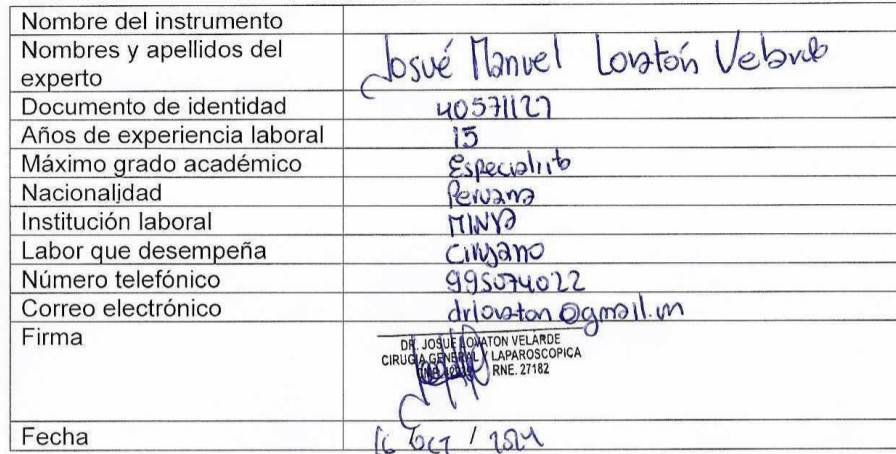 Nombre del instrumento
Nombres y apellidos del experto Josué Manuel Lovatón Velarde
Documento de identidad 40571127
Años de experiencia laboral 15
Máximo grado académico Especialista
Nacionalidad Peruana
Institución laboral MINSA
Labor que desempeña Cirujano
Número telefónico 995074022
Correo electrónico drlovaton@gmail.com
Firma
DR. JOSUE LOVATON VELARDE
CIRUGIA GENERAL Y LAPAROSCOPICA
RNE. 27182
Fecha 16 OCT / 2024